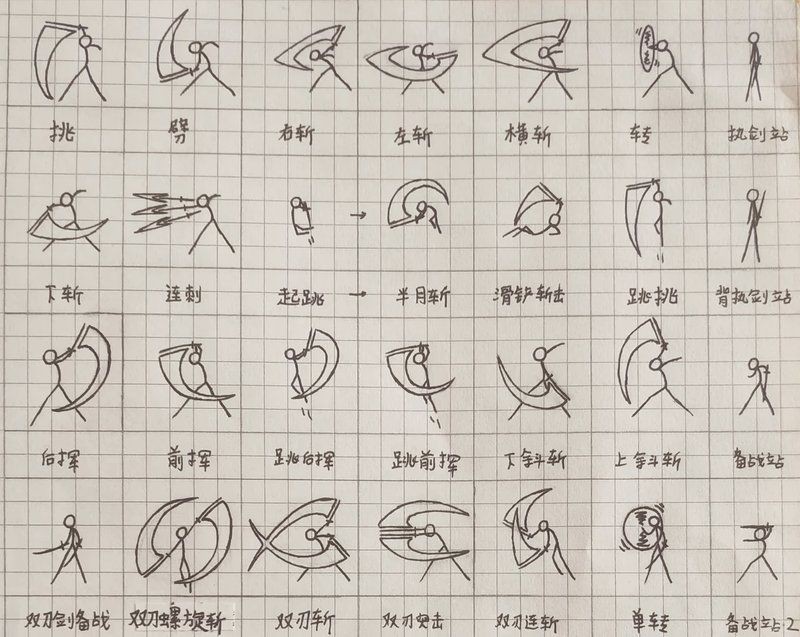 挑 劈 右斩 左斩 横斩 车转 执剑站
下斩 连刺 起跳 → 半月斩 滑铲斩击 跳挑 背执剑站
后挥 前挥 跳后挥 跳前挥 下斜斩 上斜斩 备战站
双刃剑备战 双刃螺旋斩 双刃斩 双刃突击 双刃连斩 单转 备战站2